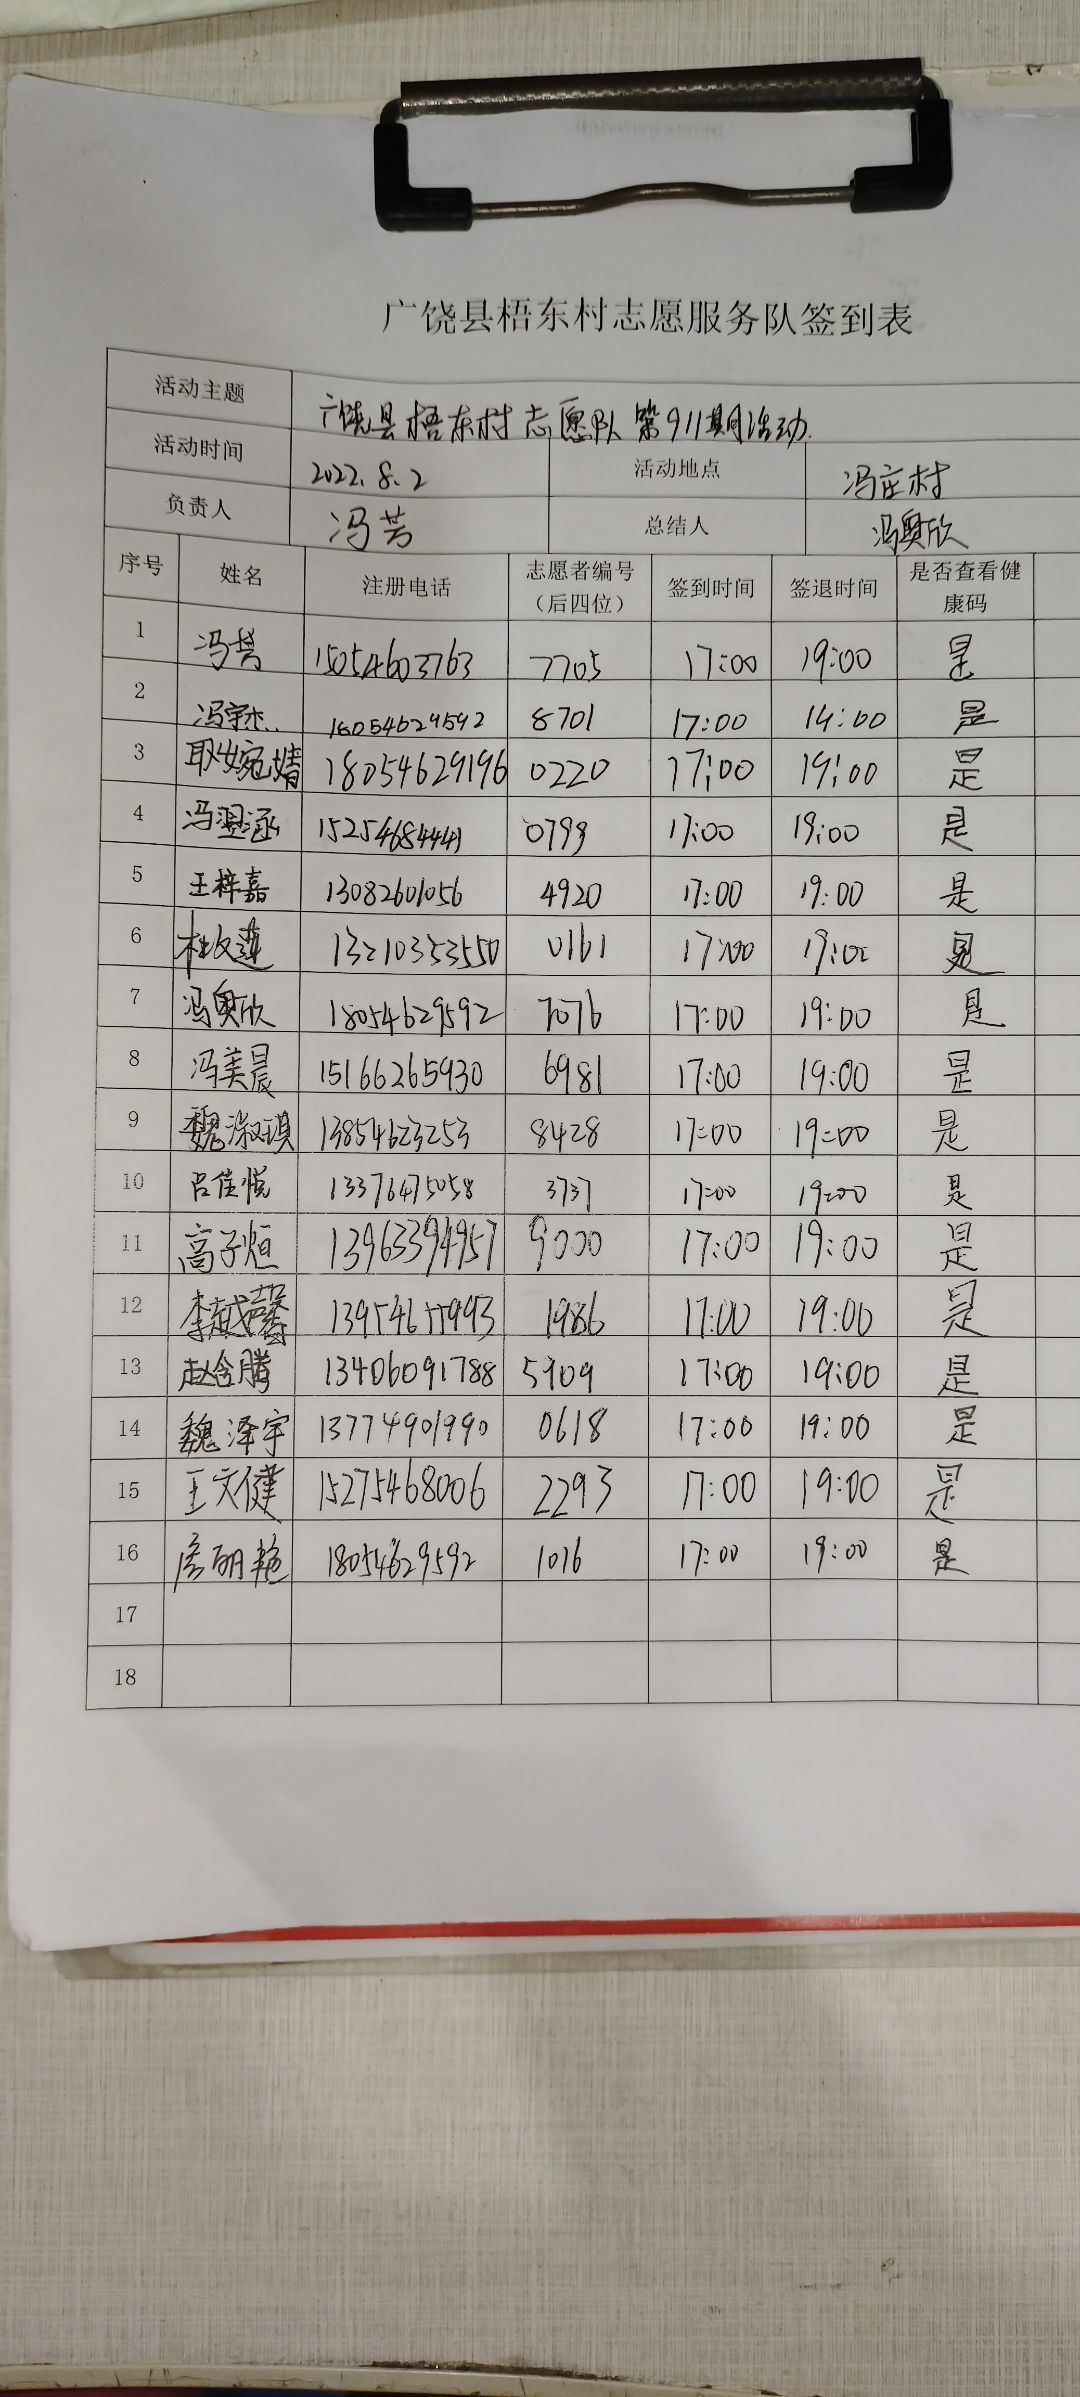 广饶县梧东村志愿服务队签到表
活动主题 广饶县梧东村志愿队第911期活动
活动时间 2022.8.2 活动地点 冯庄村
负责人 冯芸 总结人 冯奥欣
序号 姓名 注册电话 志愿者编号（后四位） 签到时间 签退时间 是否查看健康码
1 冯芸 15054603763 7705 17:00 19:00 是
2 冯宇杰 18054629592 8701 17:00 19:00 是
3 耿婉婧 18054629196 0220 17:00 19:00 是
4 冯涵 15254684441 0799 17:00 19:00 是
5 王梓嘉 13082601056 4920 17:00 19:00 是
6 杜文莲 13210353550 0161 17:00 19:00 是
7 冯奥欣 18054629592 7076 17:00 19:00 是
8 冯美晨 15166265930 6981 17:00 19:00 是
9 魏淑琪 13854623253 8428 17:00 19:00 是
10 吕佳悦 13376475058 3737 17:00 19:00 是
11 高子烜 13963394957 9000 17:00 19:00 是
12 李越馨 13954655993 1986 17:00 19:00 是
13 赵含腾 13406091788 5909 17:00 19:00 是
14 魏泽宇 13774901990 0618 17:00 19:00 是
15 王文健 15275468006 2293 17:00 19:00 是
16 艳 18054629592 1016 17:00 19:00 是
17
18